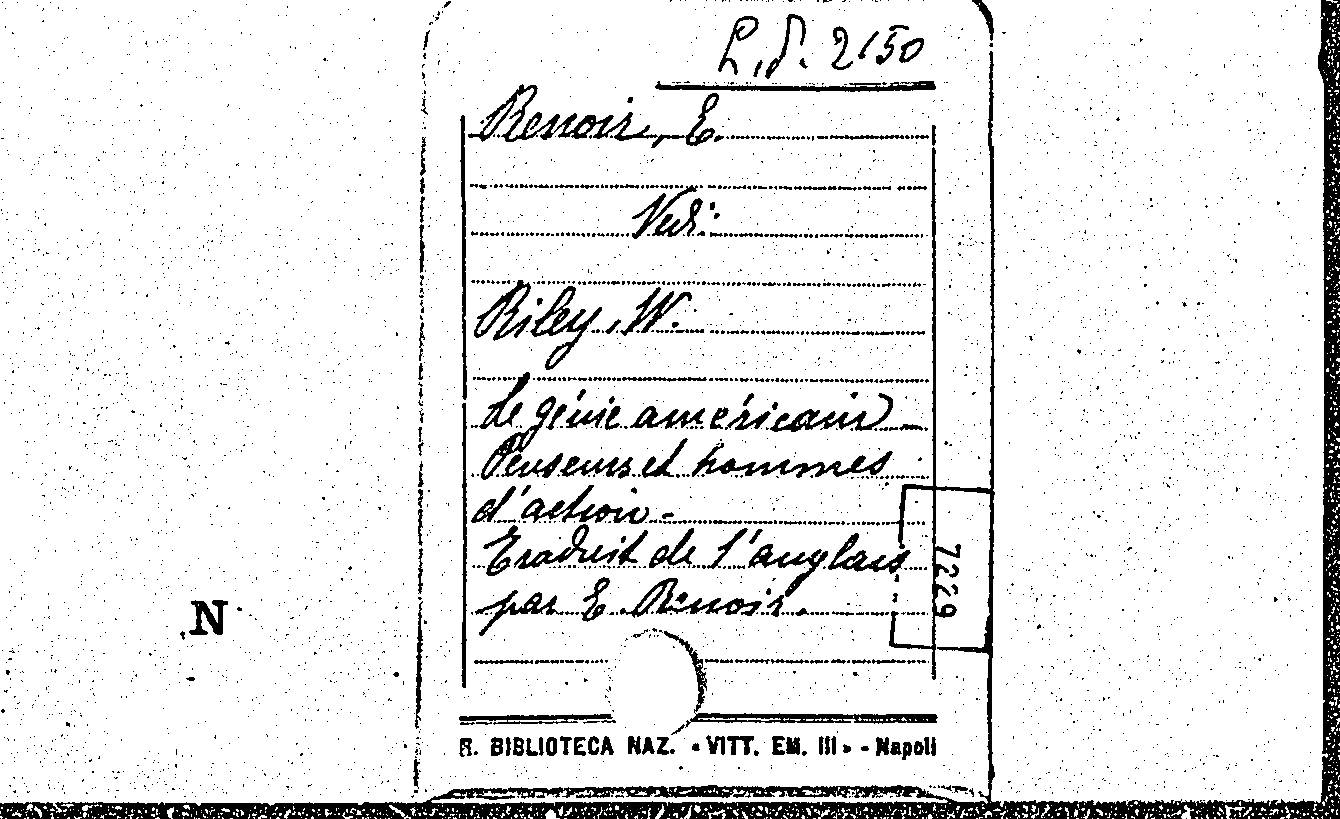 L.P. 2150
Renoir, E.
Vedi:
Riley, W.
Le génie américain -
Penseurs et hommes
d'action -
Traduit de l'anglais
par E. Renoir.
7229
N
R. BIBLIOTECA NAZ. « VITT. EM. III » - Napoli